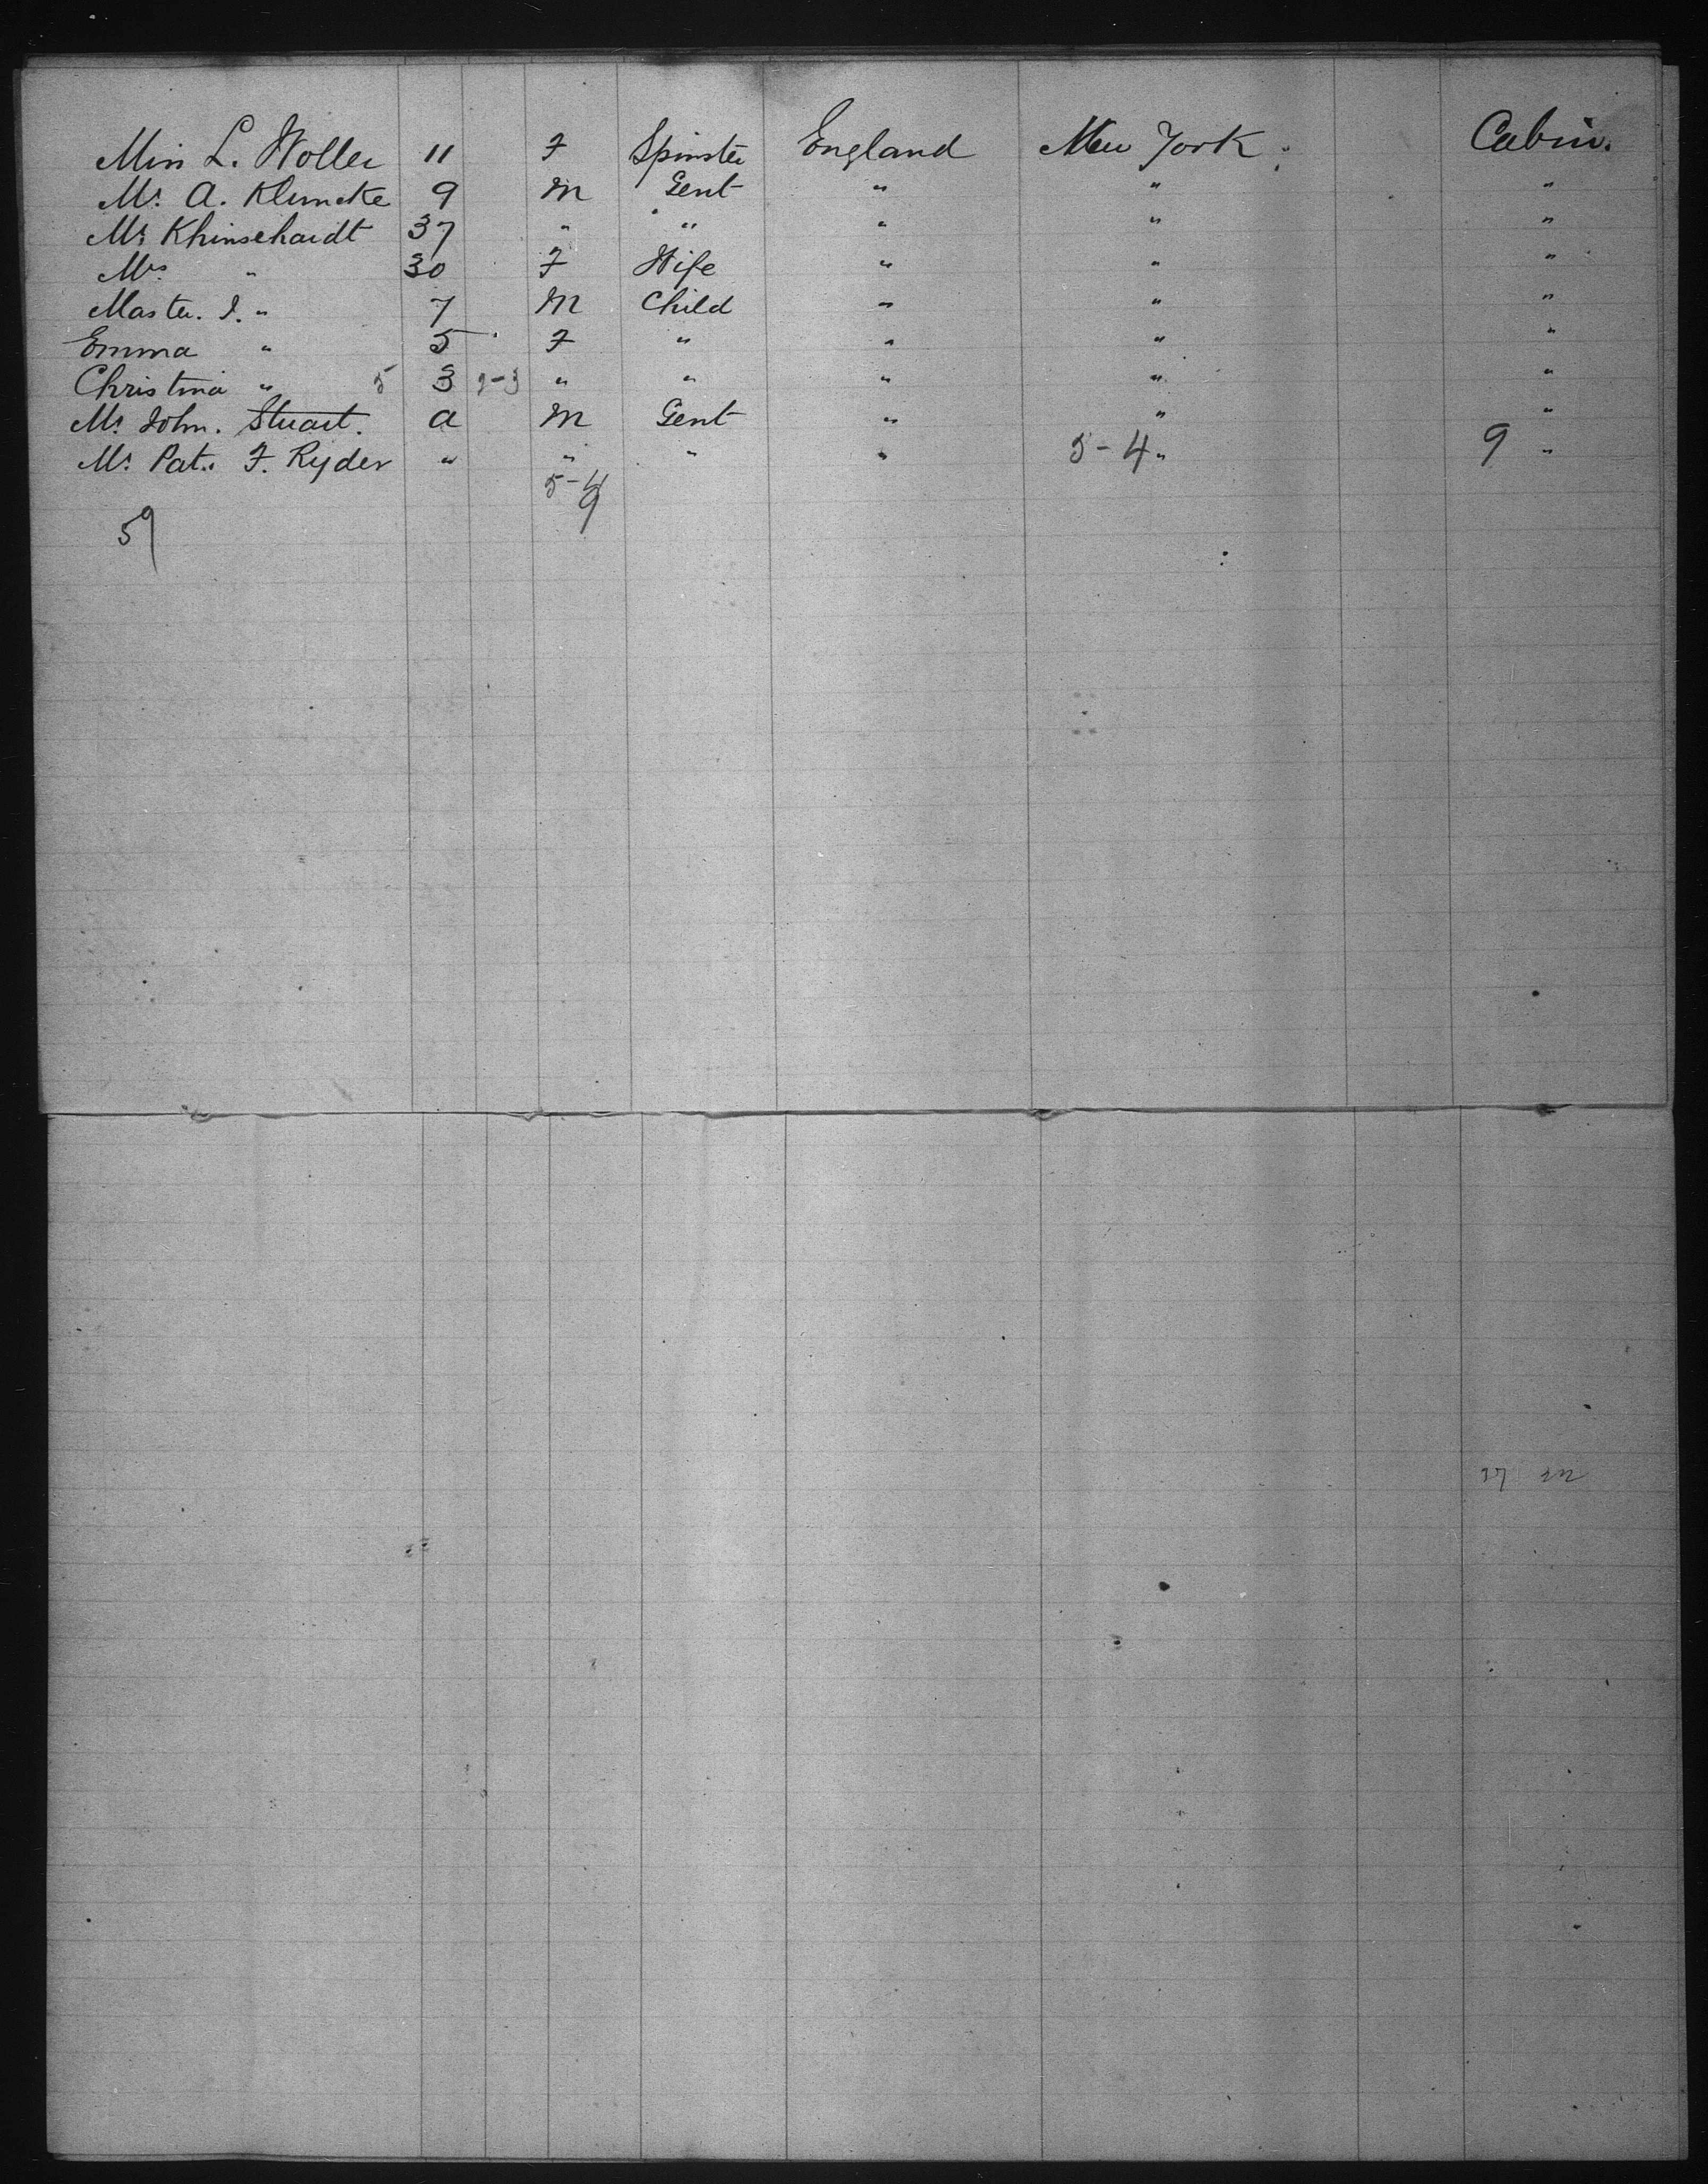 Miss L. Holler 11 F Spinster England New York Cabin.
Mr. A. Kluncke 9 M Gent " " "
Mr Khinsehardt 37 " " " " "
Mrs " 30 F Wife " " "
Master. I. " 7 M Child " " "
Emma " 5 F " " " "
Christina " 5 3 2-3 " " " " "
Mr John. Stuart. a M Gent " " "
Mr Pat. F. Ryder " " " " 5-4 " 9 "
5-4
9
59